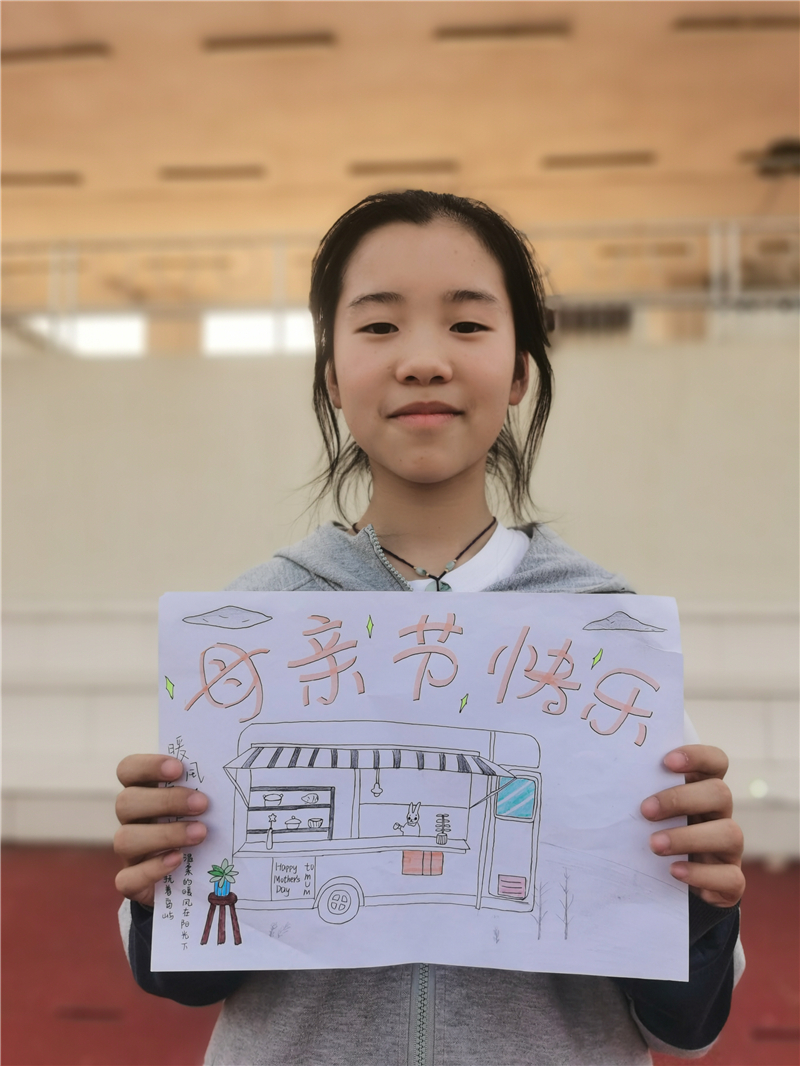 母亲节快乐
暖风
温柔的暖风在阳光下
抚着岛屿
Happy
Mother's
Day
to
MUM